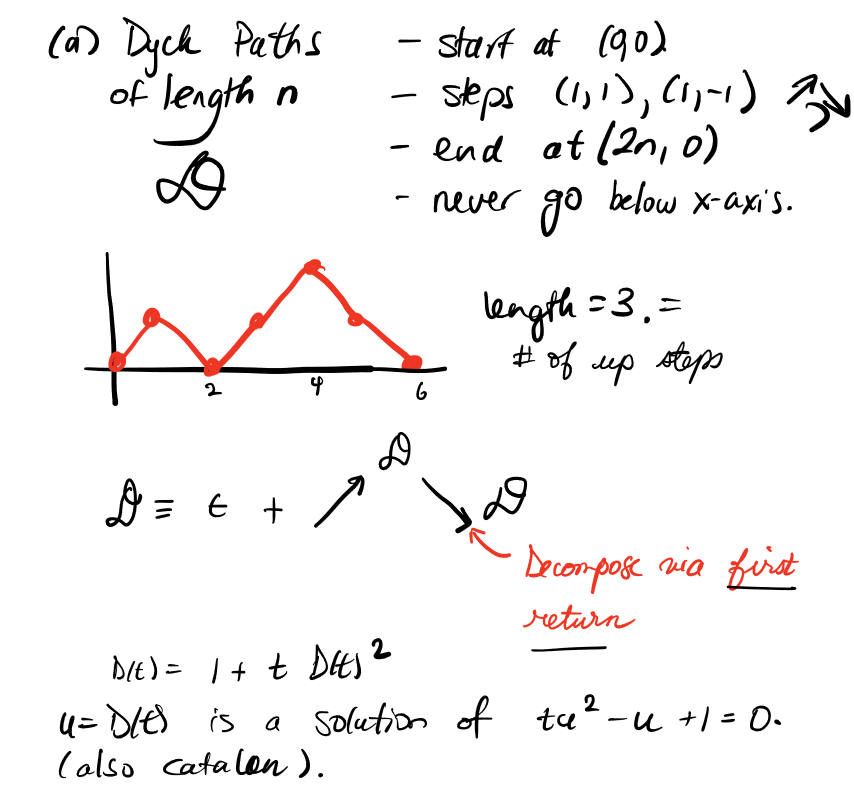 (a) Dyck Paths
of length n
𝒟
- start at (0,0)
- steps (1,1), (1,-1) ↗ ↘
- end at (2n, 0)
- never go below x-axis.
2 4 6
length = 3. =
# of up steps
𝒟 ≡ ϵ + ↗ 𝒟 ↘ 𝒟
Decompose via first
return
D(t) = 1 + t D(t)²
u = D(t) is a solution of tu² - u + 1 = 0.
(also catalan).